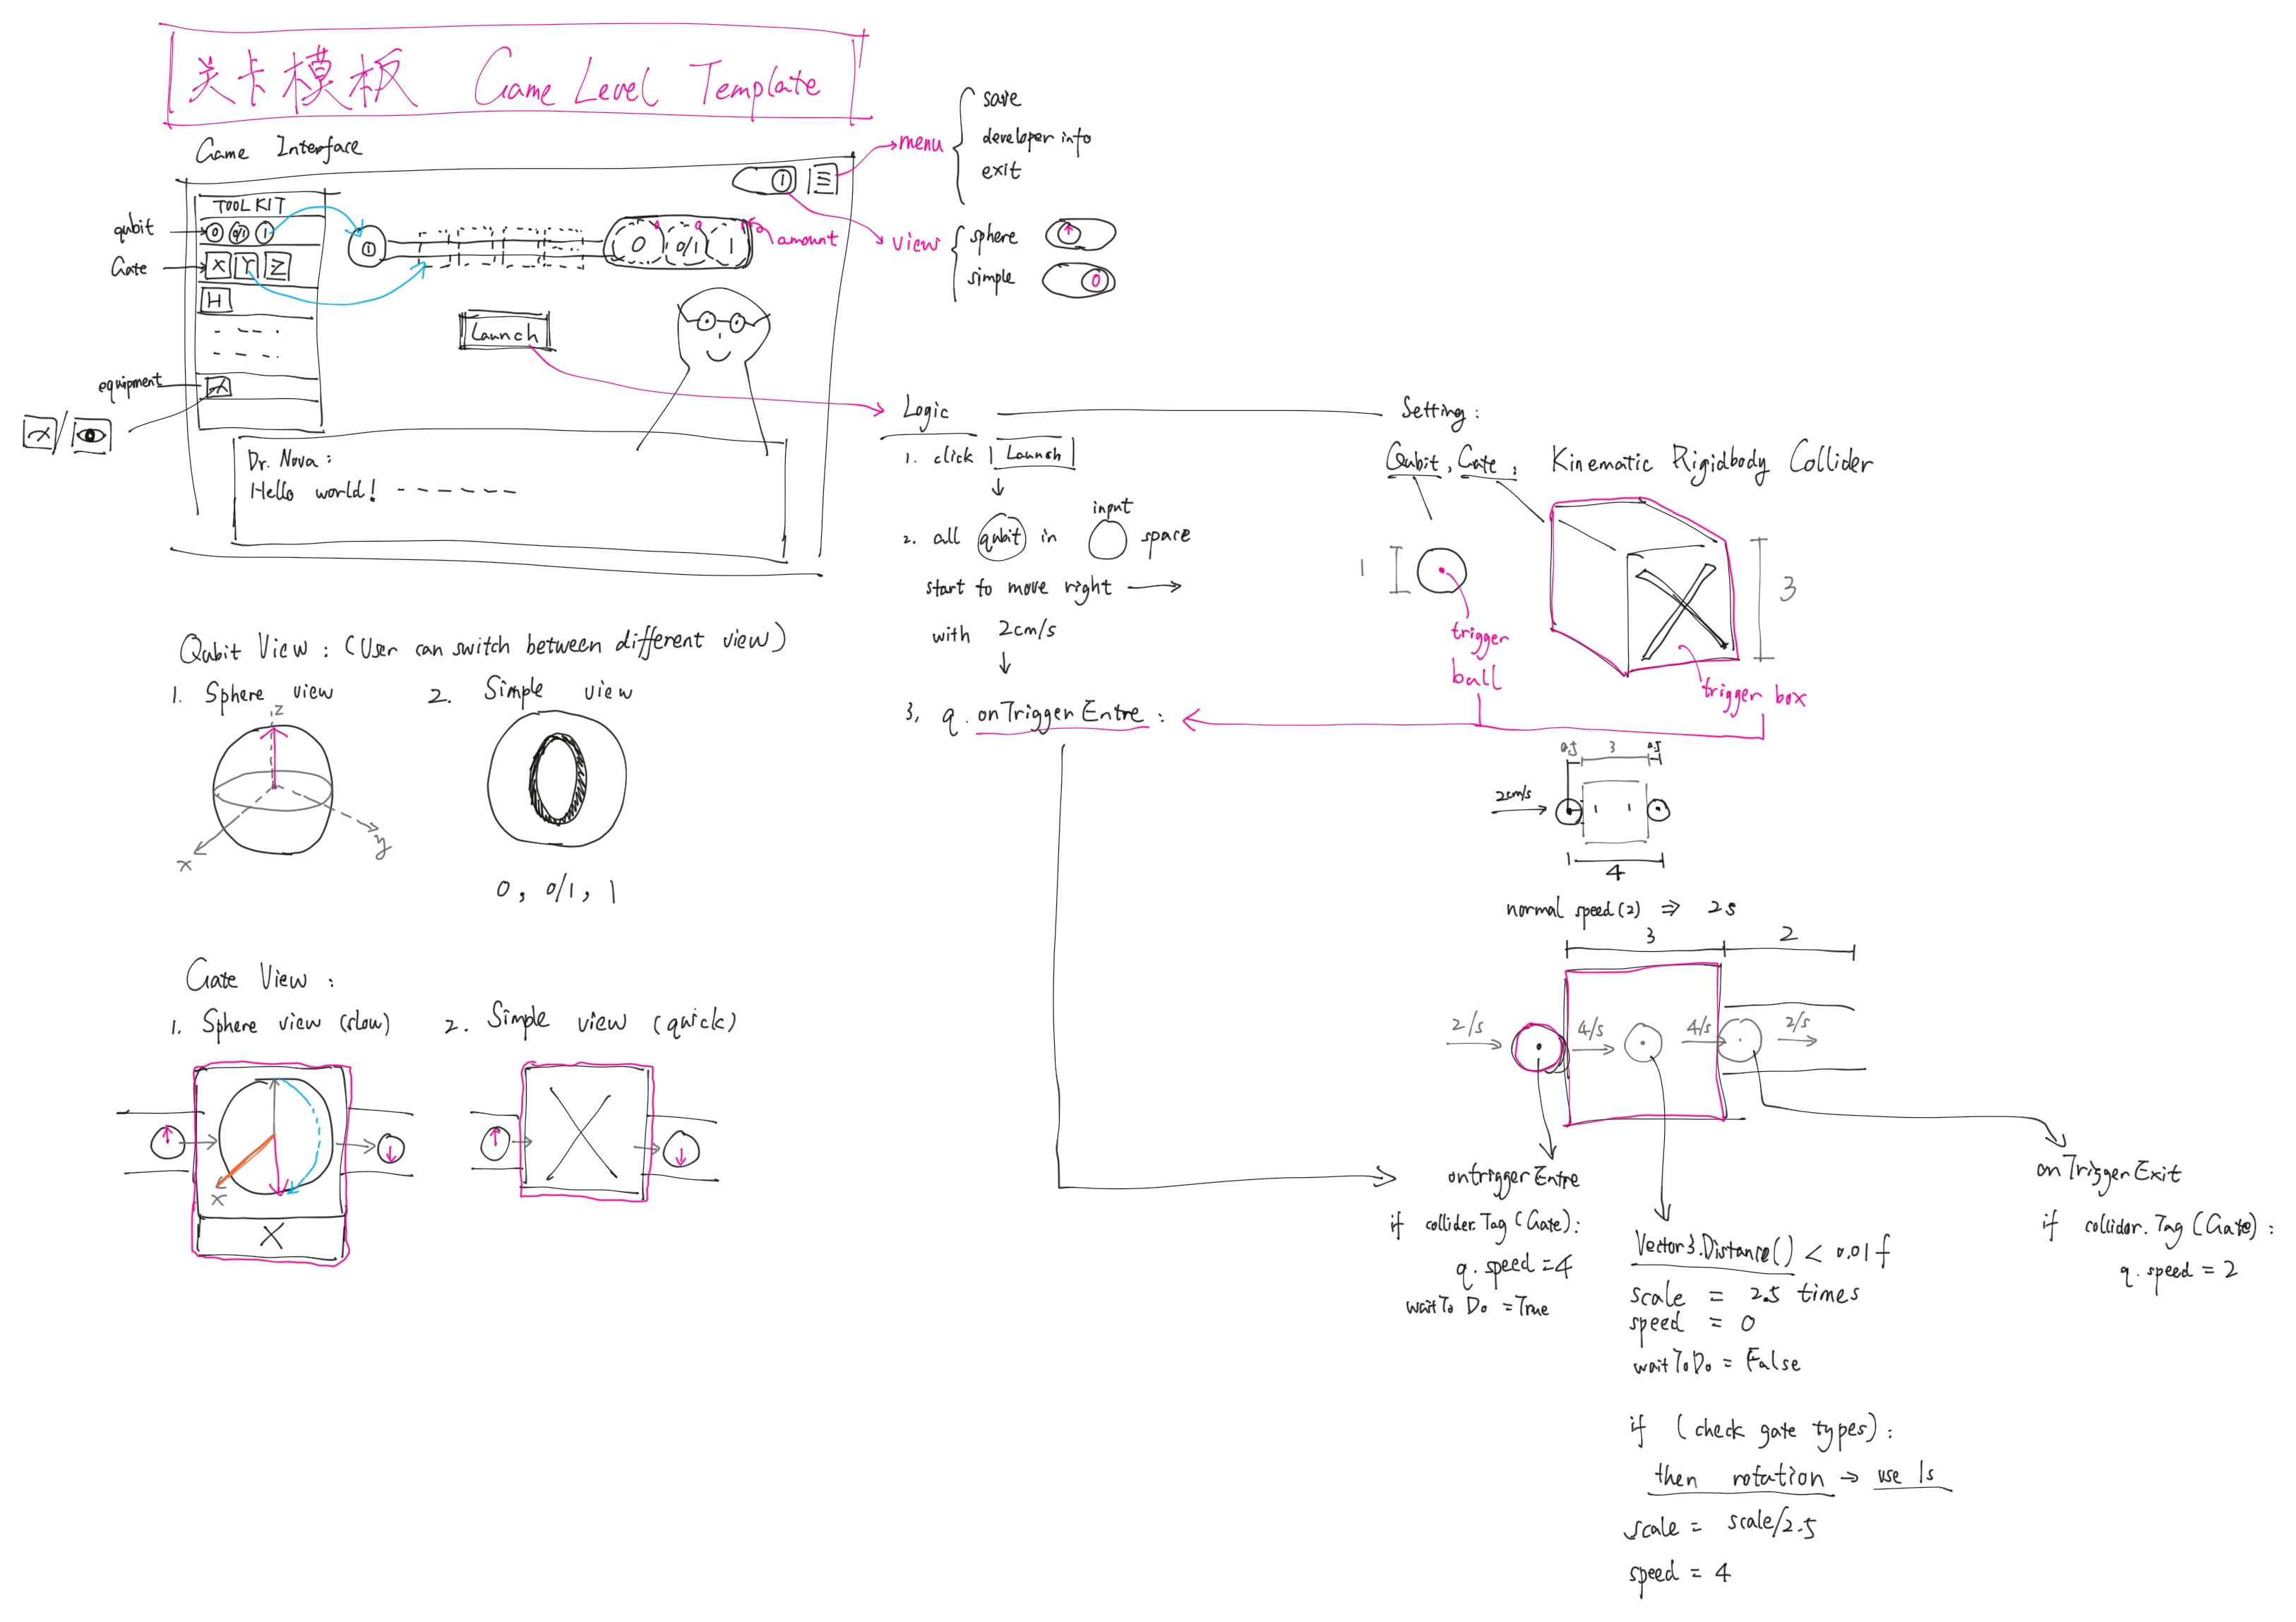 关卡模板 Game Level Template
Game Interface
TOOL KIT
qubit
0 0/1 1
Gate
X Y Z
H
equipment
1
0 0/1 1
amount
1
Launch
Dr. Nova:
Hello world! - - - - - - -
menu
save
developer info
exit
view
sphere
simple
0
Qubit View: (User can switch between different view)
1. Sphere view
z
x
y
2. Simple view
0
0, 0/1, 1
Gate View:
1. Sphere view (slow)
x
X
2. Simple view (quick)
X
Logic
1. click Launch
2. all qubit in input space
start to move right
with 2cm/s
3. q.onTriggerEntre:
Setting:
Qubit, Gate: Kinematic Rigidbody Collider
1
trigger
ball
X
3
trigger box
0.5 3 0.5
2cm/s
4
normal speed(2) ⇒ 2s
3 2
2/s 4/s 4/s 2/s
ontriggerEntre
if collider.Tag(Gate):
q.speed=4
waitToDo =True
Vector3.Distance() < 0.01f
scale = 2.5 times
speed = 0
waitToDo = False
if (check gate types):
then rotation → use 1s
scale = scale/2.5
speed = 4
onTriggerExit
if collider.Tag(Gate):
q.speed = 2